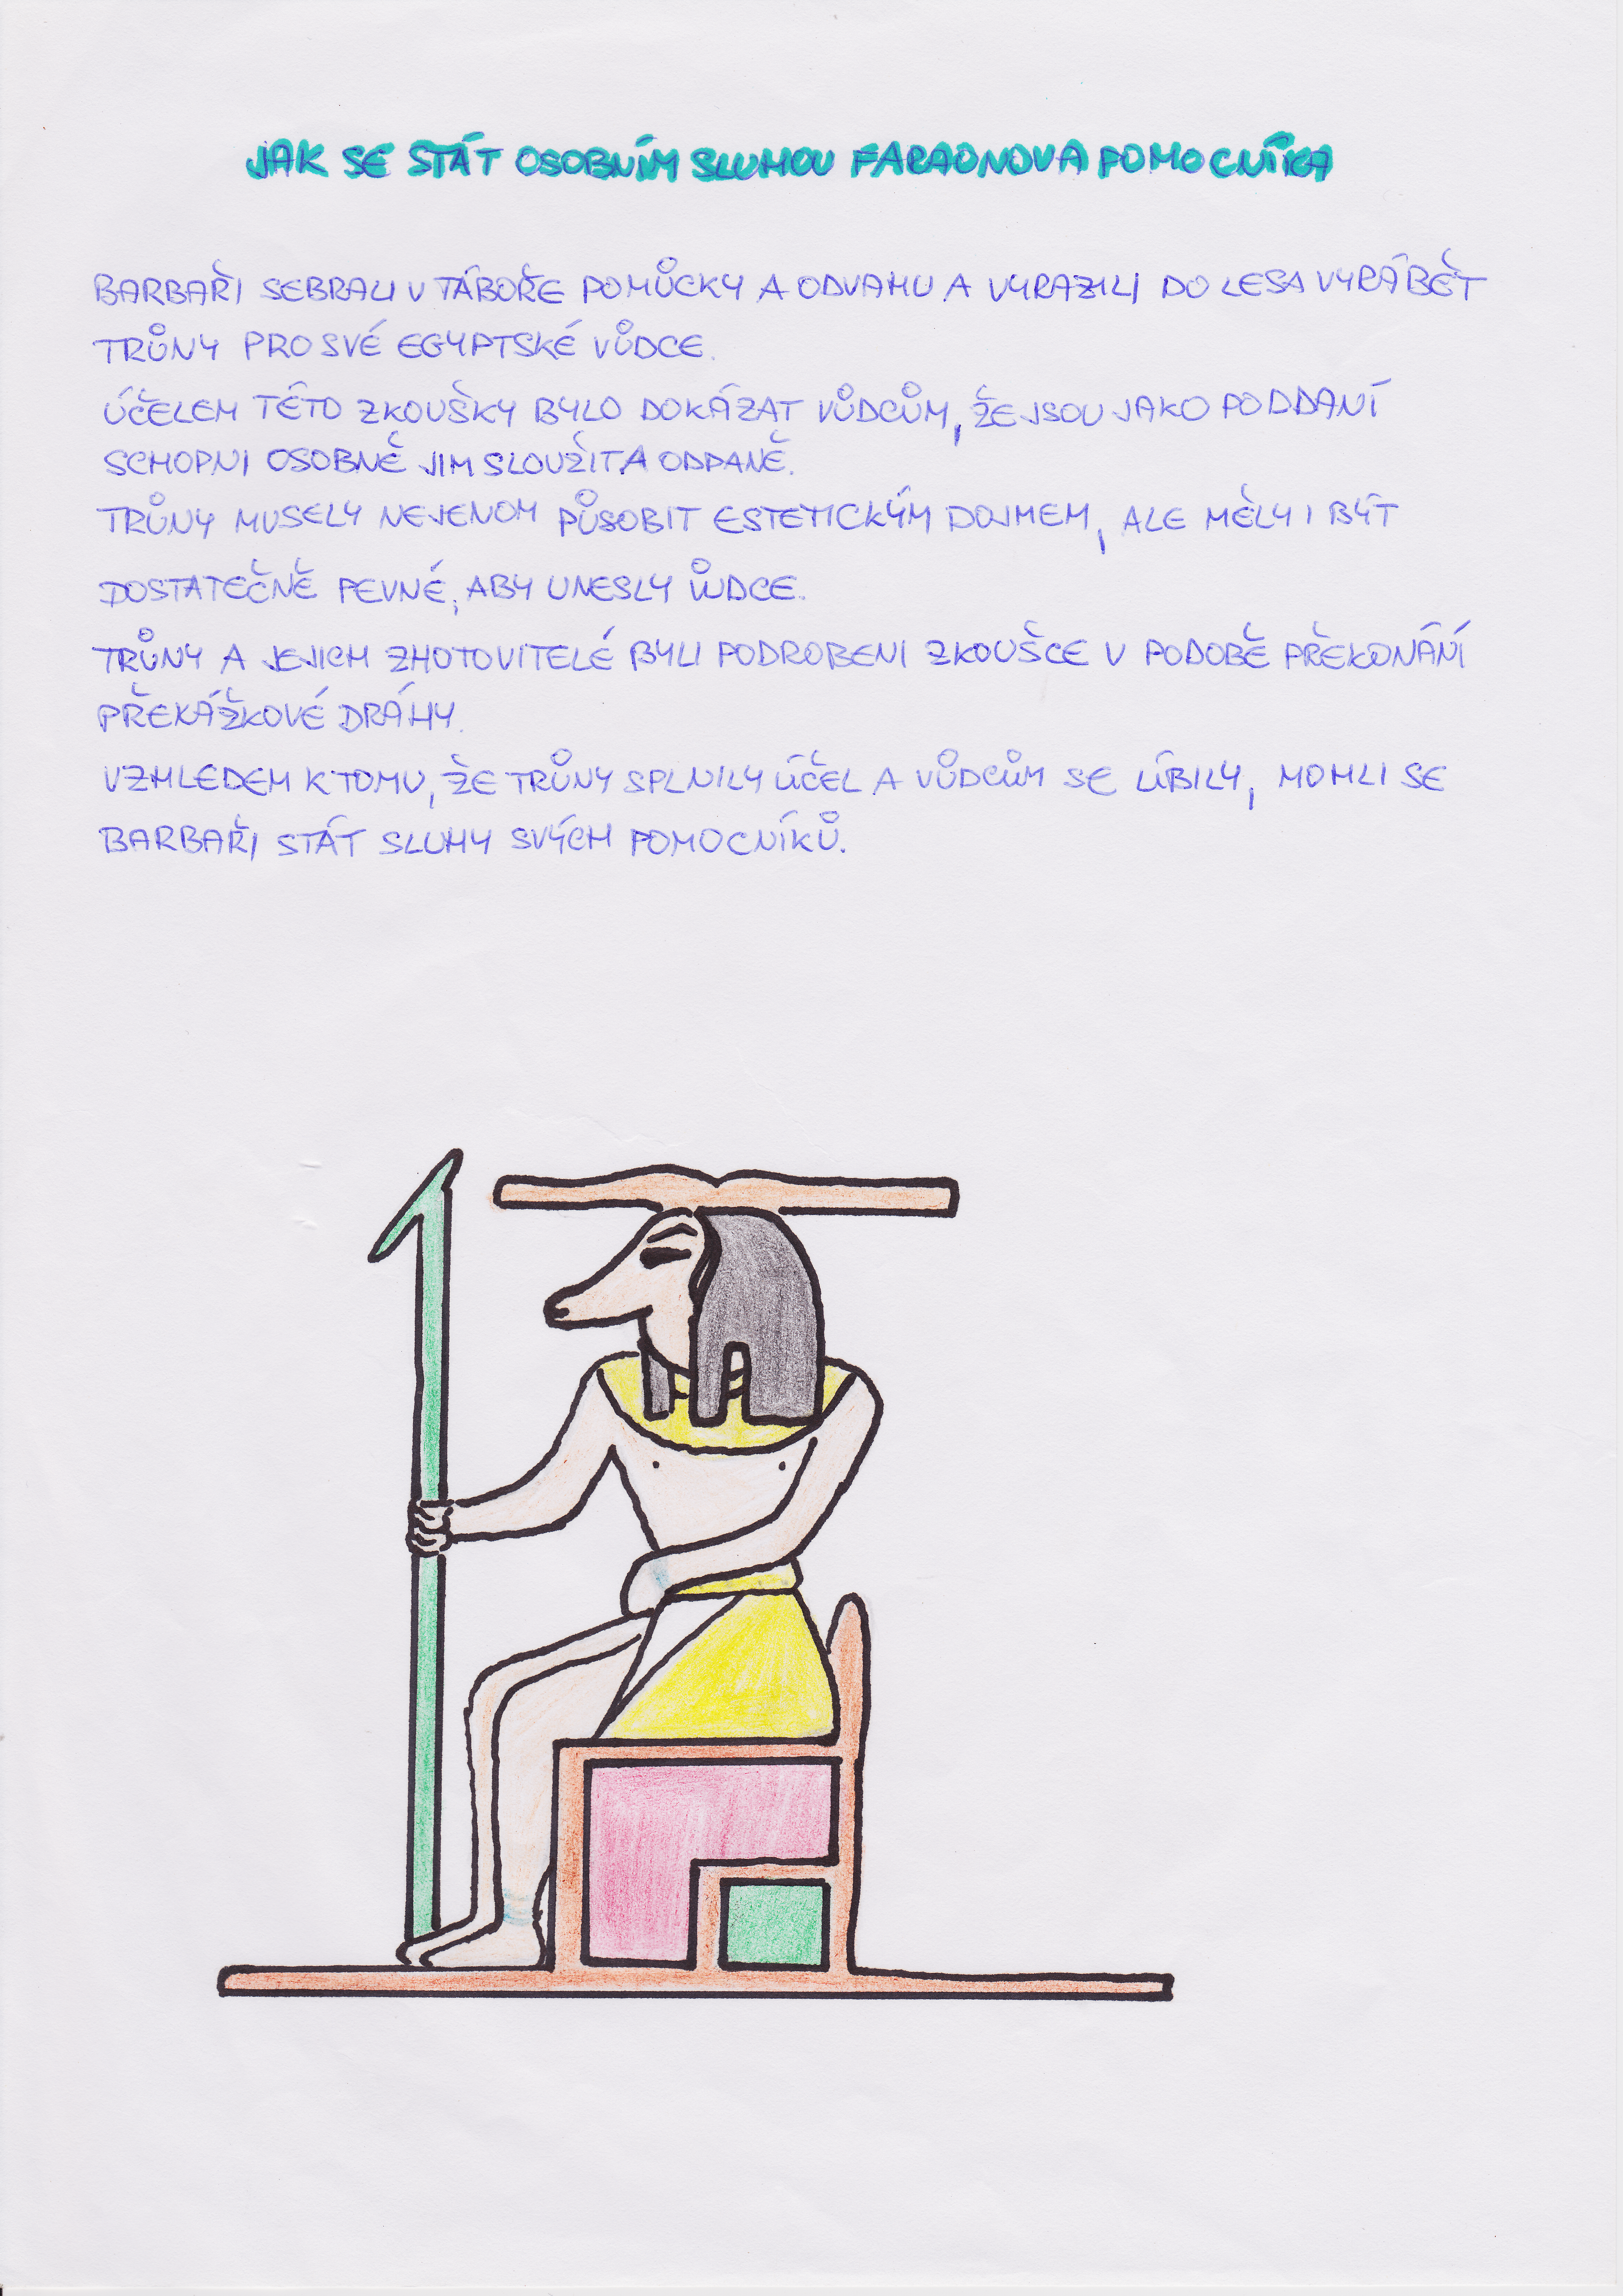 JAK SE STÁT OSOBNÍM SLUHOU FARAONOVA POMOCNÍKA
BARBAŘI SEBRALI V TÁBOŘE POMŮCKY A ODVAHU A VYRAZILI DO LESA VYRÁBĚT
TRŮNY PRO SVÉ EGYPTSKÉ VŮDCE.
ÚČELEM TÉTO ZKOUŠKY BYLO DOKÁZAT VŮDCŮM, ŽE JSOU JAKO PODDANÍ
SCHOPNI OSOBNĚ JIM SLOUŽIT A ODDANĚ.
TRŮNY MUSELY NEJENOM PŮSOBIT ESTETICKÝM DOJMEM, ALE MĚLY I BÝT
DOSTATEČNĚ PEVNÉ, ABY UNESLY VŮDCE.
TRŮNY A JEJICH ZHOTOVITELÉ BYLI PODROBENI ZKOUŠCE V PODOBĚ PŘEKONÁNÍ
PŘEKÁŽKOVÉ DRÁHY.
VZHLEDEM K TOMU, ŽE TRŮNY SPLNILY ÚČEL A VŮDCŮM SE LÍBILY, MOHLI SE
BARBAŘI STÁT SLUHY SVÝCH POMOCNÍKŮ.